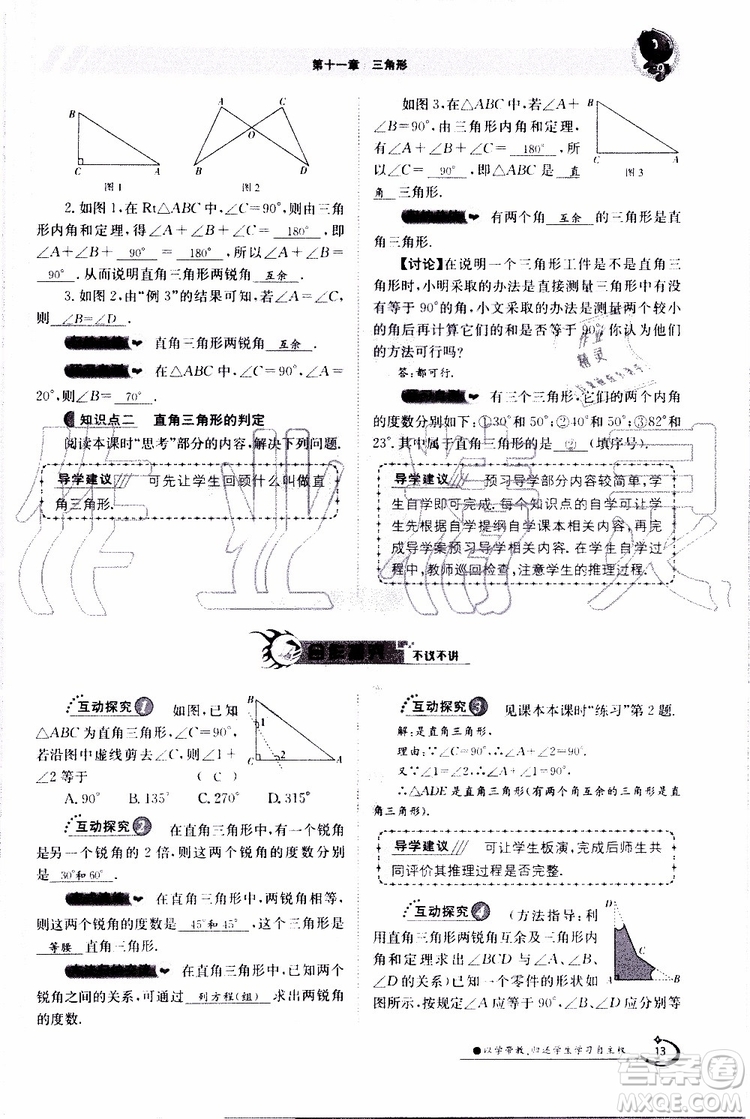 第十一章 三角形
B
C
A
图1
A
C
O
B
D
图2
2. 如图1,在Rt△ABC中,∠C=90°,由三角
形内角和定理,得∠A+∠B+∠C= 180° ,即
∠A+∠B+ 90° = 180° ,所以∠A+∠B=
90° .从而说明直角三角形两锐角 互余 .
3. 如图2,由“例3”的结果可知,若∠A=∠C,
则 ∠B=∠D .
直角三角形两锐角 互余 .
在△ABC中,∠C=90°,∠A=
20°,则∠B= 70° .
知识点二 直角三角形的判定
阅读本课时“思考”部分的内容,解决下列问题.
导学建议 可先让学生回顾什么叫做直
角三角形.
如图3,在△ABC中,若∠A+
∠B=90°,由三角形内角和定理,
有∠A+∠B+∠C= 180° ,所以
∠C= 90° ,即△ABC是 直
角 三角形.
B
C
A
图3
有两个角 互余 的三角形是直
角三角形.
【讨论】在说明一个三角形工件是不是直角三
角形时,小明采取的办法是直接测量三角形里有
没有等于90°的角,小文采取的办法是测量两个较小
的角后再计算它们的和是否等于90°.你认为他们
的方法可行吗?
答:都可行.
有三个三角形,它们的两个内角
的度数分别如下:①30°和50°;②40°和50°;③82°和
23°.其中属于直角三角形的是 ② (填序号).
导学建议 预习导学部分内容较简单,学
生自学即可完成.每个知识点的自学可让学
生先根据自学提纲自学课本相关内容,再完
成导学案预习导学相关内容.在学生自学过
程中,教师巡回检查,注意学生的推理过程.
作业精灵
不议不讲
互动探究1 如图,已知
△ABC为直角三角形,∠C=90°,
若沿图中虚线剪去∠C,则∠1+
∠2等于 ( C )
A. 90° B. 135° C. 270° D. 315°
B
1
2
C
A
互动探究2 在直角三角形中,有一个锐角
是另一个锐角的2倍,则这两个锐角的度数分别
是 30°和60° .
在直角三角形中,若有两个锐角相等,
则这两个锐角的度数是 45°和45° ,这个三角形是
等腰 直角三角形.
在直角三角形中,已知两个
锐角之间的关系,可通过 列方程(组) 求出两锐角
的度数.
互动探究3 见课本本课时“练习”第2题.
解:是直角三角形.
理由:∵∠C=90°,∴∠A+∠2=90°.
又∵∠1=∠2,∴∠A+∠1=90°.
∴△ADE是直角三角形(有两个角互余的三角形是
直角三角形).
导学建议 可让学生板演,完成后师生共
同评价其推理过程是否完整.
互动探究4 (方法指导:利
用直角三角形两锐角互余及三角形内
角和定理求出∠BCD与∠A、∠B、
∠D的关系)已知一个零件的形状如
图所示,按规定∠A应等于90°,∠B、∠D应分别
D
C
A
B
以学带教,归还学生学习自主权
13
答案圈